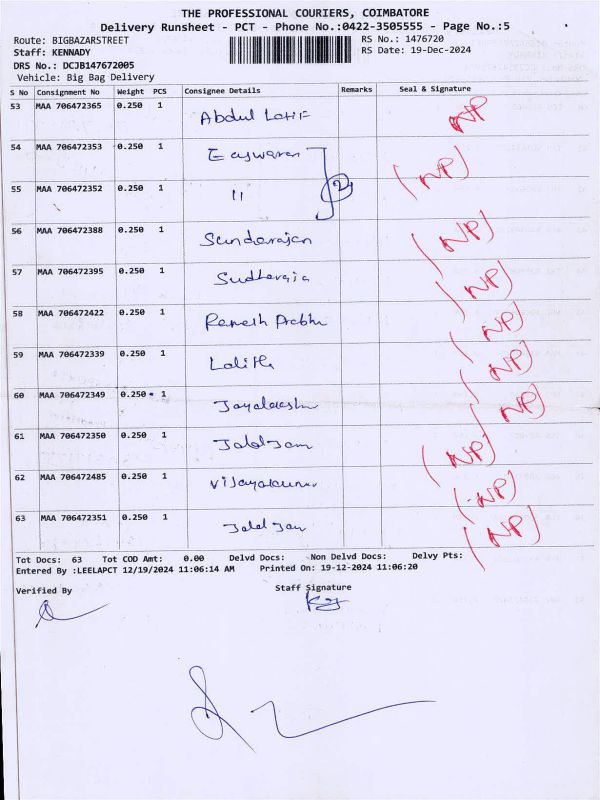 THE PROFESSIONAL COURIERS, COIMBATORE
Delivery Runsheet - PCT - Phone No.:0422-3505555 - Page No.:5
Route: BIGBAZARSTREET RS No.: 1476720
Staff: KENNADY RS Date: 19-Dec-2024
DRS No.: DCJB147672005
Vehicle: Big Bag Delivery
S No Consignment No Weight PCS Consignee Details Remarks Seal & Signature
53 MAA 706472365 0.250 1 Abdul Latif NP
54 MAA 706472353 0.250 1 Easwaran (NP)
55 MAA 706472352 0.250 1 11 2
56 MAA 706472388 0.250 1 Sundarajan (NP)
57 MAA 706472395 0.250 1 (NP)
58 MAA 706472422 0.250 1 Ramesh Prabhu (NP)
59 MAA 706472339 0.250 1 Lalitha (NP)
60 MAA 706472349 0.250 1 (NP)
61 MAA 706472350 0.250 1 (NP)
62 MAA 706472485 0.250 1 Vijayakumar (NP)
63 MAA 706472351 0.250 1 (NP)
Tot Docs: 63 Tot COD Amt: 0.00 Delvd Docs: Non Delvd Docs: Delvy Pts:
Entered By :LEELAPCT 12/19/2024 11:06:14 AM Printed On: 19-12-2024 11:06:20
Verified By Staff Signature